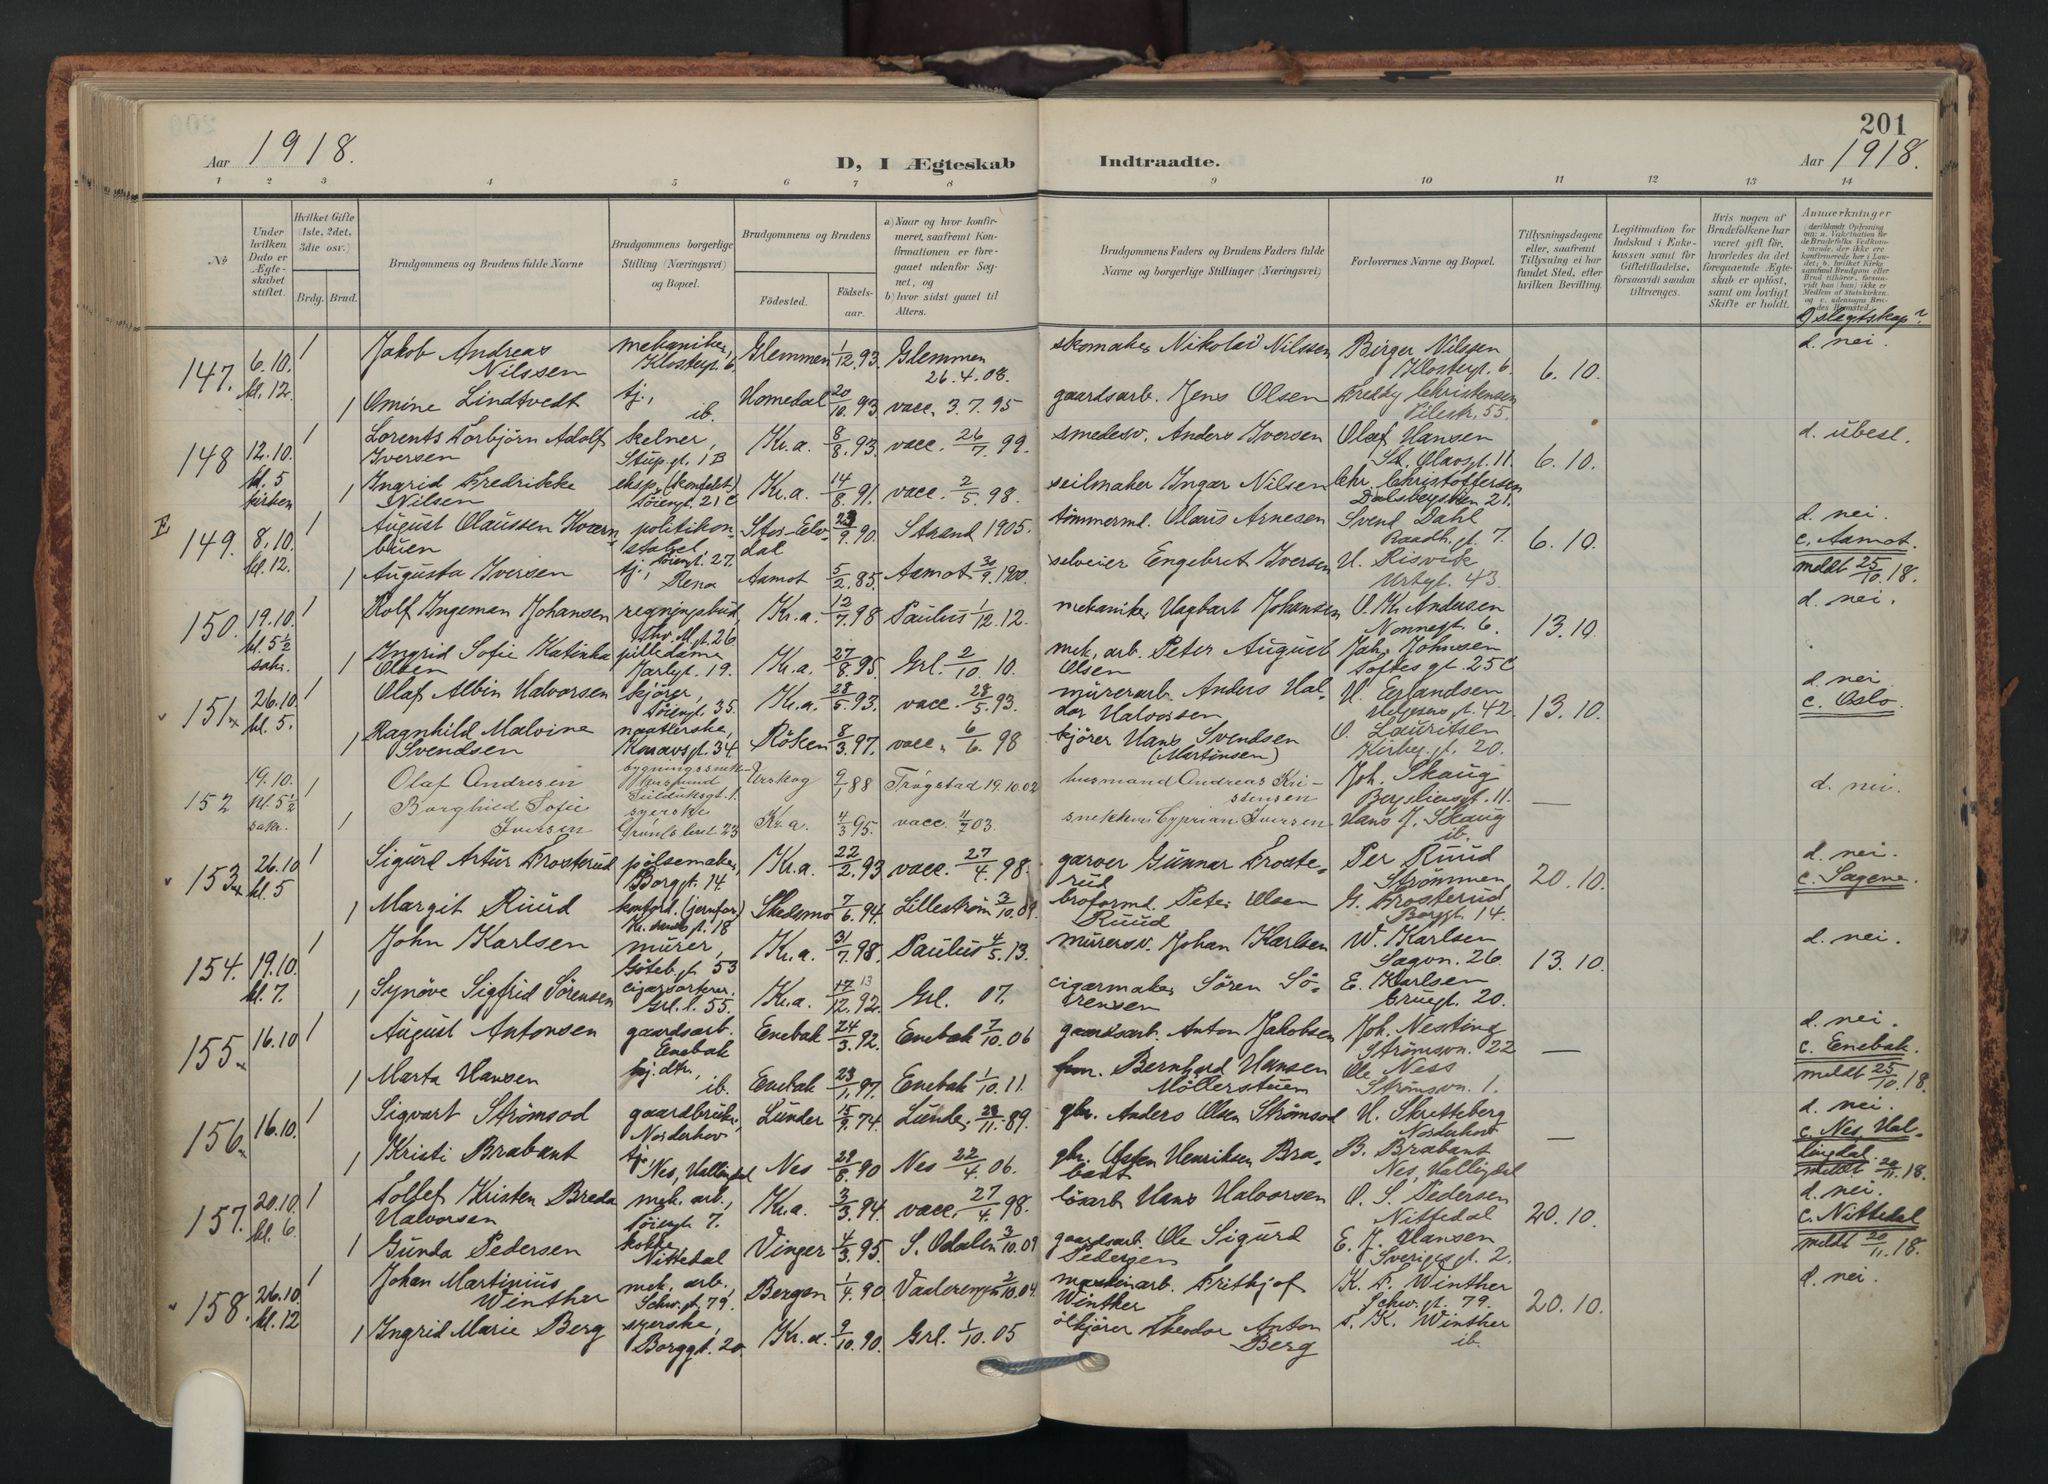 201
Aar 1918.
D, I Ægteskab
Indtraadte.
Aar 1918.
1 2 3 4 5 6 7 8 9 10 11 12 13 14
No
Under hvilken Dato er Ægteskabet stiftet.
Hvilket Gifte (1ste, 2det, 3die osv.)
Brdg. Brud.
Brudgommens og Brudens fulde Navne
Brudgommens borgerlige Stilling (Næringsvei) og Bopæl.
Brudgommens og Brudens
Fødested.
Fødselsaar.
a) Naar og hvor konfirmeret, saafremt Konfirmationen er foregaaet udenfor Sognet, og
b) hvor sidst gaaet til Alters.
Brudgommens Faders og Brudens Faders fulde Navne og borgerlige Stillinger (Næringsvei)
Forlovernes Navne og Bopæl.
Tillysningsdagene eller, saafremt Tillysning ei har fundet Sted, efter hvilken Bevilling.
Legitimation for Indskud i Enkekassen samt for Giftetilladelse, forsaavidt saadan tiltrænges.
Hvis nogen af Brudefolkene har været gift før, hvorledes da det foregaaende Ægteskab er opløst, samt om lovligt Skifte er holdt.
Anmærkninger
d) slegtskap?
147. 6.10. kl. 12. 1 Jakob Andreas Nilssen mekaniker, Klostergt. 6 Glemmen 1/12.93 Glemmen 26.4.08. skomaker Nikolai Nilssen Birger Nilsen Klostergt. 6. 6.10. d. nei.
1 Omine Lindtvedt tj., ib. Homedal 20/10.93 vacc. 3.7.95 gaardsarb. Jens Olsen Freddy Christensen Pilestr. 55.
148 12.10. kl. 5 kirken 1 Lorents Torbjörn Adolf Iversen kelner, Stup.gt. 1 B Kr.a. 8/8.93 vacc. 26/7.99. smedesv. Anders Iversen Olaf Hansen St. Olavsgt. 11. 6.10. d. ubesl.
1 Ingrid Fredrikke Nilsen eksp. Töiengt. 21 C Kr.a. 14/8.91. vacc. 2/5.98. seilmaker Ingar Nilsen Chr. Christoffersen 21.
E 149. 8.10. kl. 12. 1 August Olaussen Kværnbuen politikonstabel, Töiengt. 27. Stor-Elvdal 9.90. Strand 1905. tömmermd. Olaus Arnesen Svend Dahl Raadh.gt. 7. 6.10. d. nei. c. Aamot. meldt 25/10.18.
1 Augusta Iversen tj., Rena Aamot 5/2.85. Aamot 30/9.1900. selveier Engebret Iversen H. Risvik Urtegt. 43.
150. 19.10. kl. 5½ sakr. 1 Rolf Ingeman Johansen regningsbud, Thv. M. gt. 26 Kr.a. 12/7.98 Paulus 1/12.12. mekaniker Hagbart Johansen O. Kr. Andersen Nonnegt. 6. 13.10. d. nei.
1 Ingrid Sofie Katinka Olsen pilledame Jarlegt. 19. Kr.a. 27/8.95. Grl. 2/10.10. mek. arb. Peter August Olsen Joh. Johnsen Toftes gt. 25 C
151 x 26.10. kl. 5. 1 Olaf Albin Halvorsen kjörer, Töiengt. 35. Kr.a. 28/5.93. vacc. 28/5.93. murerarb. Anders Haldor Halvorsen H. Erlandsen Helgesensgt. 42. 13.10. d. nei c. Oslo.
1 Ragnhild Malvine Svendsen naatlerske, 34 Röken 8/3.97. vacc. 6/6.98 kjörer Hans Svendsen (Martinsen) O. Lauritsen Kirkeg.gt. 20.
152 19.10. kl. 5½ sakr. 1 Olaf Andresen bygningssnek- Urskog 9/1 88 Trøgstad 19.10.02 husmand Andreas Kristensen Joh. Skaug Bergliensgt. 11. — d. nei.
1 Borghild Sofie Iversen syerske Grønlsleret 23 Kr.a. 4/3 95. vacc. 4/7 03. snekker Cyprian Iversen Hans J. Skaug ib.
153 x 26.10 kl. 5 1 Sigurd Artur Frosterud pølsemaker, Borggt. 14. Kr.a. 22/2.93 vacc. 27/4.98. garver Gunnar Frosterud Per Ruud Strømmen 20.10. d. nei. c. Sagene.
1 Margit Ruud kontord. (jernfor.) 18 Skedsmo 7/6.94. Lillestrøm 3/10.09. broformd. Peter Olsen Ruud G. Frosterud Borggt. 14.
154. 19.10. kl. 7. 1 John Karlsen murer, Göteb.gt. 53 Kr.a. 31/7.98. Paulus 4/5.13. murersv. Johan Karlsen W. Karlsen Sagvn. 26. 13.10. d. nei.
1 Synöve Sigfrid Sörensen cigarsorterer. Grl. l. 55. Kr.a. 17/12.92. Grl. 07. cigarmaker Sören Sörensen E. Karlsen Cruegt. 20.
155 x 16.10 1 August Antonsen gaardsarb. Enebak Enebak 24/3.92. Enebak 7/10.06 gaardsarb. Anton Jakobsen Joh. Nesting Strömsvn. 22 — d. nei. c. Enebak. meldt 25/10.18.
1 Marta Hansen ib. Enebak 23/1.97. Enebak 1/10.11. Bernhard Hansen Möllerstuen Ole Ness Strömsvn. 1.
156 x 16.10. 1 Sigvart Strömsod gaardbruker, Norderhov Lunder 15/9.74. Lunder 11.89. gbr. Anders Olsen Strömsod H. Skretteberg Norderhov — d. nei. c. Nes, Hallingdal. meldt 20/11.18.
1 Kristi Brabant tj. Nes, Hallingdal Nes 29/8.90 Nes 22/4.06. gbr. Henriksen Brabant B. Brabant Nes, Hallingdal
157. 20.10. kl. 6 1 Tollef Kristen Breda Halvorsen mek. arb., Töiengt. 7. Kr.a. 3/3.94. vacc. 27/4.98. lösarb. Hans Halvorsen O. S. Pedersen Nittedal 20.10. d. nei. c. Nittedal meldt 20/11.18.
1 Gunda Pedersen kokke Nittedal Vinger 4/3.95. S. Odalen 3/10.09 gaardsarb. Ole Sigurd Pedersen E. J. Hansen Sverigesgt. 2.
158. 26.10. kl. 12 1 Johan Martinius Winther mek. arb., Schw. gt. 79. Bergen 1/4.90 Vaalerengen 2/10.04. maskinarb. Fritjof Winther K. F. Winther Schw. gt. 79. 20.10. d. nei.
1 Ingrid Marie Berg syerske, Borggt. 20 Kr.a. 9/10.90. Grl. 1/10.05 ölkjörer Theodor Anton Berg K. Winther ib.